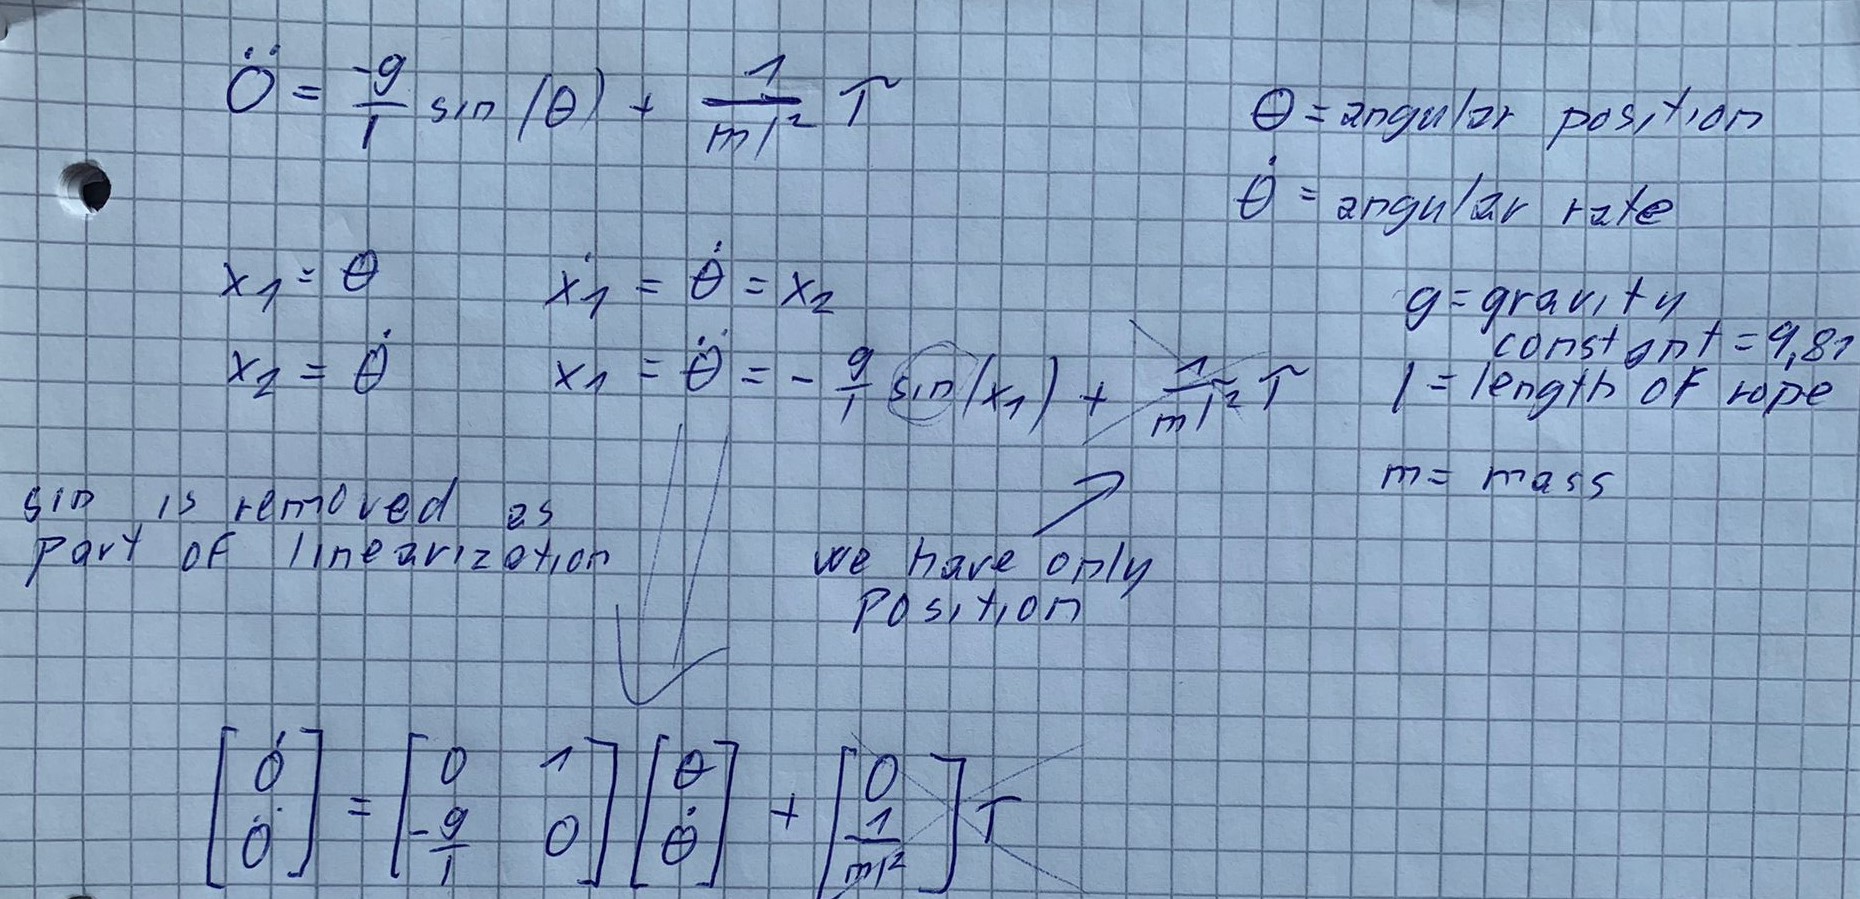 θ̈ = -g/l sin(θ) + 1/ml² T
θ = angular position
θ̇ = angular rate
x₁ = θ ẋ₁ = θ̇ = x₂
x₂ = θ̇ x₁ = θ̈ = - g/l sin(x₁) + 1/ml² T
g = gravity
constant = 9,81
l = length of rope
m = mass
sin is removed as
part of linearization
we have only
position
[θ̇; θ̈] = [0 1; -g/l 0] [θ; θ̇] + [0; 1/ml²] T